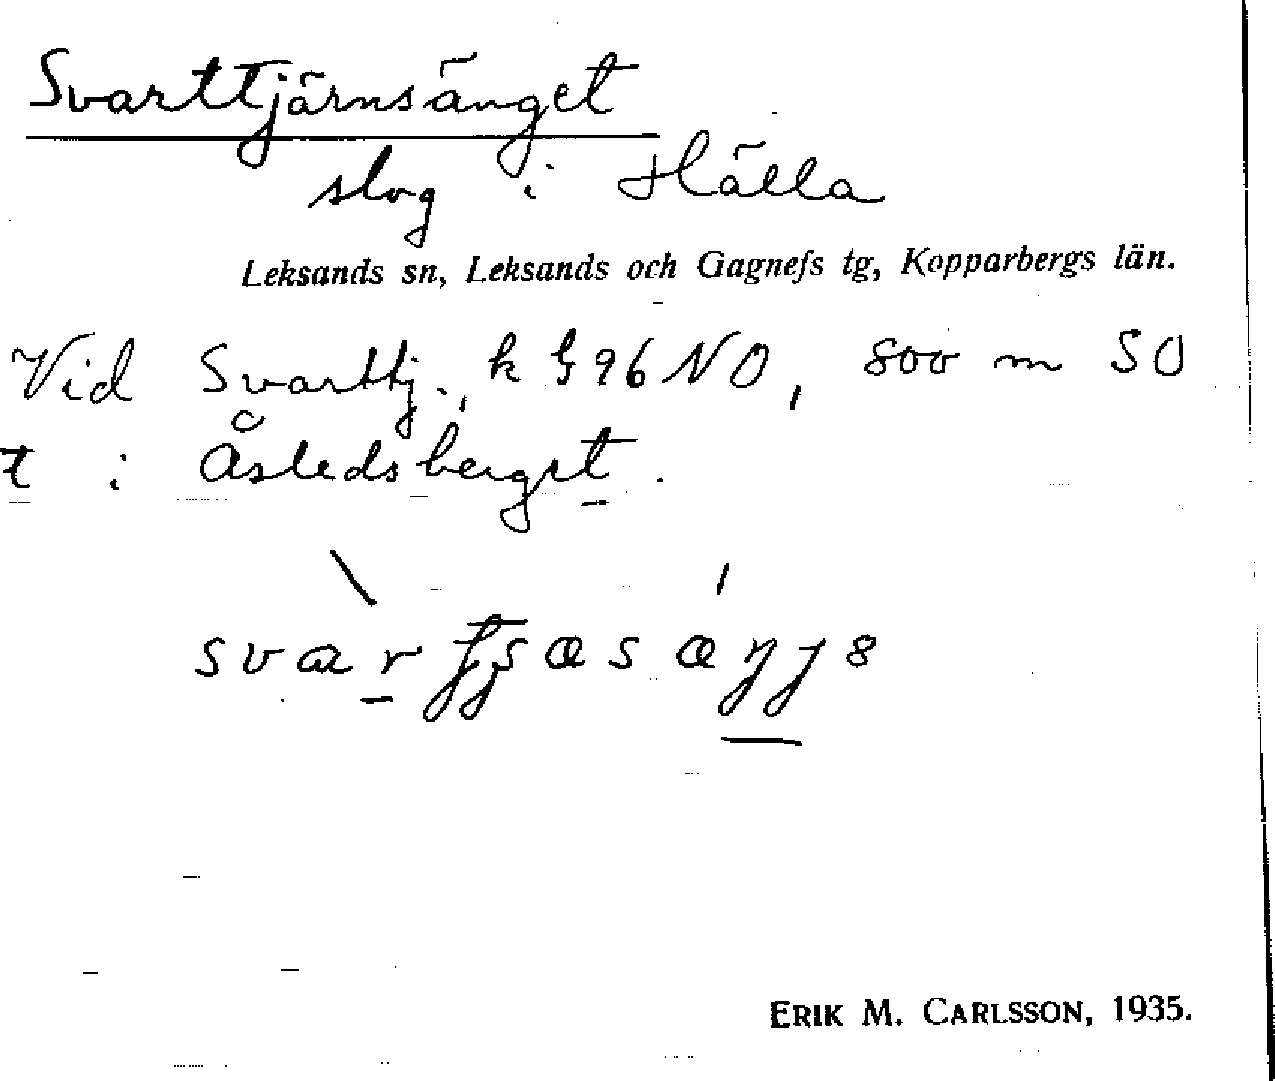 Svarttjärnsänget
slog i Hälla
Leksands sn, Leksands och Gagnefs tg, Kopparbergs län.
Vid Svarttj., k G 96 NO, 800 m SO
t i Åsledsberget.
ERIK M. CARLSSON, 1935.